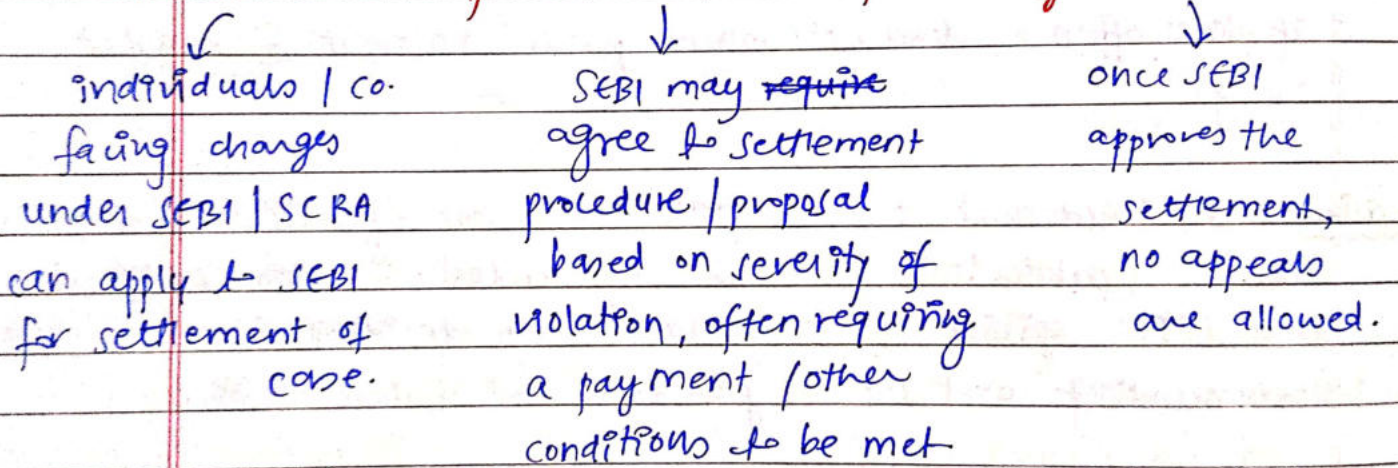 individuals / co.
facing charges
under SEBI | SCRA
can apply to SEBI
for settlement of
case.
SEBI may require
agree to settlement
procedure / proposal
based on severity of
violation, often requiring
a payment / other
conditions to be met
once SEBI
approves the
settlement,
no appeals
are allowed.